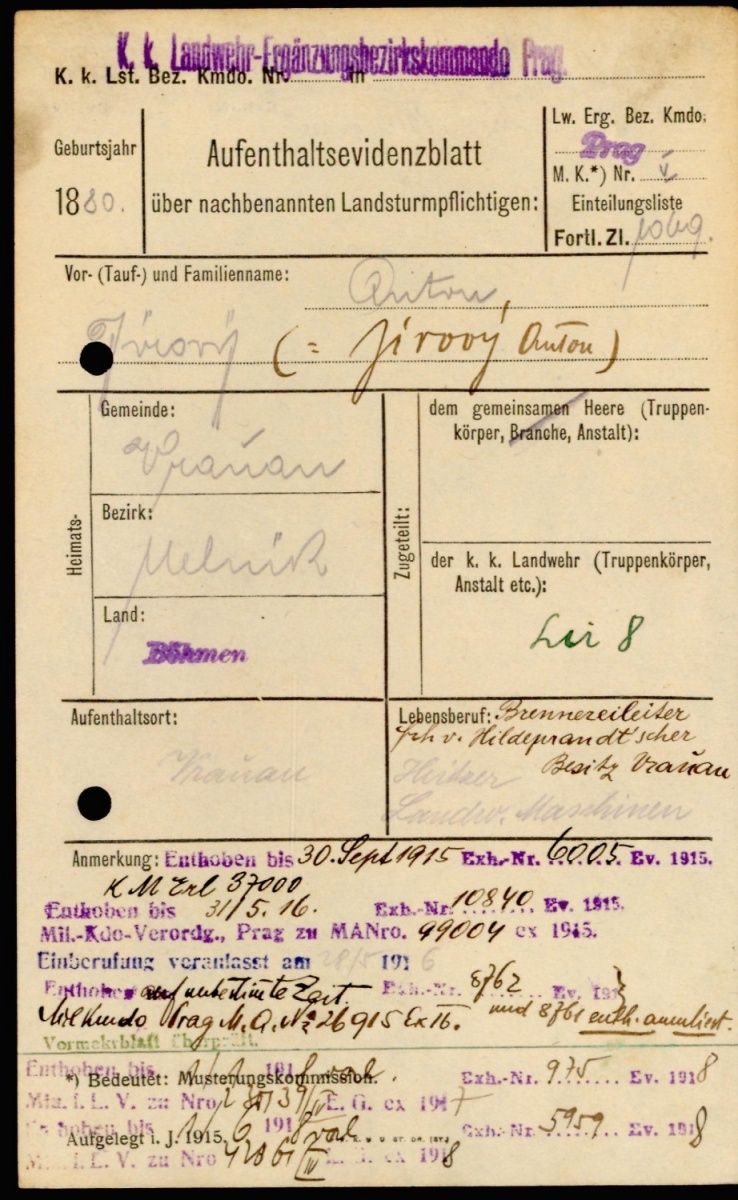 K. k. Landwehr-Ergänzungsbezirkskommando Prag.
K. k. Lst. Bez. Kmdo. Nr. in
Geburtsjahr
1880.
Aufenthaltsevidenzblatt
über nachbenannten Landsturmpflichtigen:
Lw. Erg. Bez. Kmdo.
Prag
M. K.*) Nr. V
Einteilungsliste
Fortl. Zl.
Vor- (Tauf-) und Familienname:
Anton
(= Jírový Anton)
Heimats-
Gemeinde:
Vraňan
Bezirk:
Melnik
Land:
Böhmen
Zugeteilt:
dem gemeinsamen Heere (Truppen-
körper, Branche, Anstalt):
der k. k. Landwehr (Truppenkörper,
Anstalt etc.):
Lir 8
Aufenthaltsort:
Vraňan
Lebensberuf: Brennereileiter
frh v. Hildeprandt'scher
Besitz Vraňan
Heitzer
Landw. Maschinen
Anmerkung: Enthoben bis 30. Sept 1915 Exh.-Nr. 6005 Ev. 1915.
K M Erl 37000
Enthoben bis 31/5. 16. Exh.-Nr. 10840 Ev. 1915.
Mil.-Kdo-Verordg., Prag zu MANro. 99004 ex 1915.
Einberufung veranlasst am 28/5 1916
Enthoben auf unbestimte Zeit. Exh.-Nr. 8762 Ev. 191
Milkmdo Prag M. A. Nr. 26915 Ex 16. und 8761 enth. annuliert.
Vormerkblatt überprüft.
Enthoben bis 1918 Exh.-Nr. 975 Ev. 1918
*) Bedeutet: Musterungskommission.
Min. f. L. V. zu Nro E. G. ex 1917
Enthoben bis 1918 Exh.-Nr. 5959 Ev. 1918
Aufgelegt i. J. 1915.
Min. f. L. V. zu Nro E. G. ex 1918